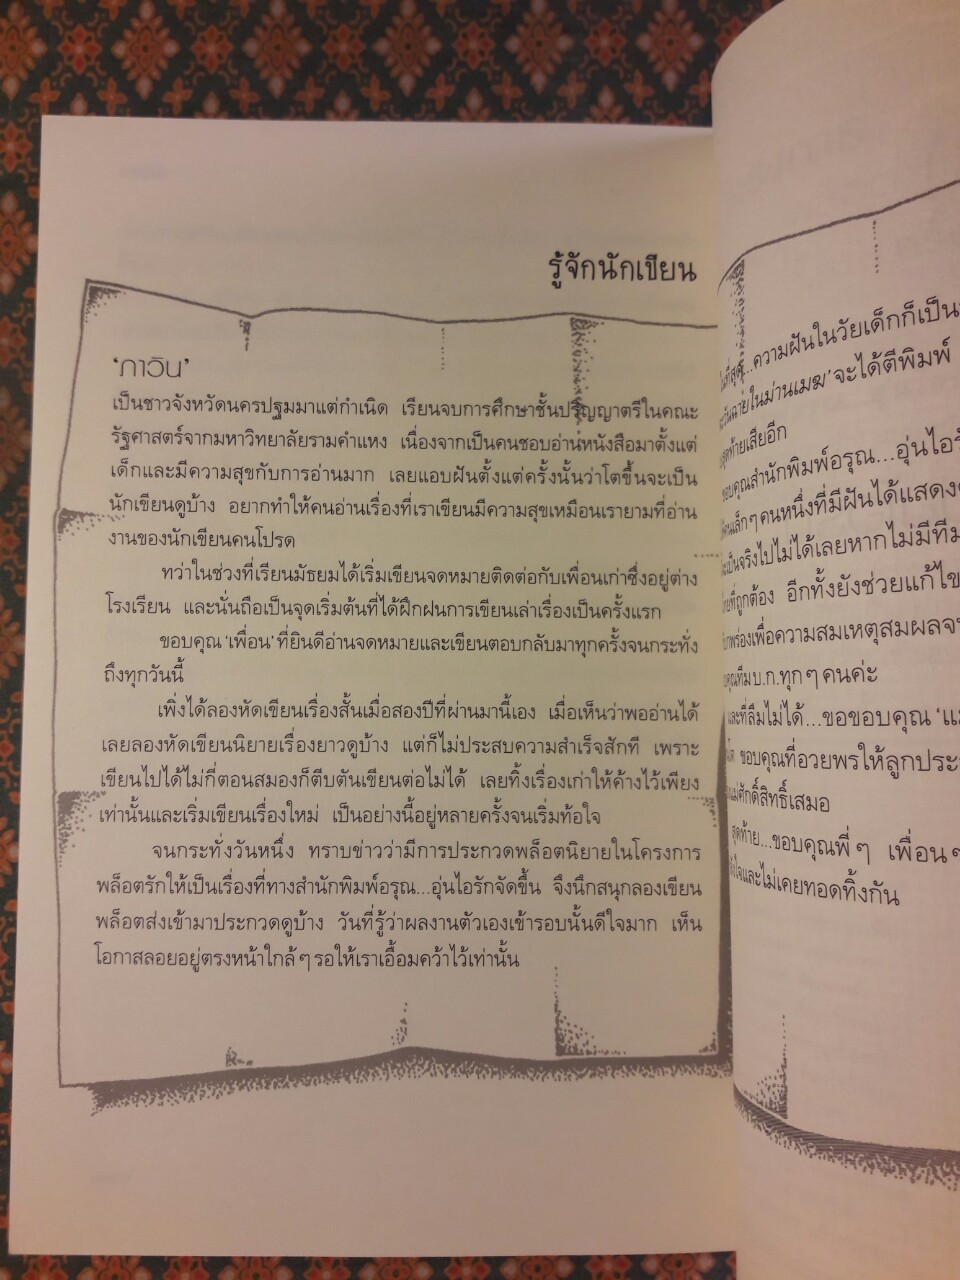 รู้จักนักเขียน
‘ภาวิน’
เป็นชาวจังหวัดนครปฐมมาแต่กำเนิด เรียนจบการศึกษาชั้นปริญญาตรีในคณะ
รัฐศาสตร์จากมหาวิทยาลัยรามคำแหง เนื่องจากเป็นคนชอบอ่านหนังสือมาตั้งแต่
เด็กและมีความสุขกับการอ่านมาก เลยแอบฝันตั้งแต่ครั้งนั้นว่าโตขึ้นจะเป็น
นักเขียนดูบ้าง อยากทำให้คนอ่านเรื่องที่เราเขียนมีความสุขเหมือนเรายามที่อ่าน
งานของนักเขียนคนโปรด
ทว่าในช่วงที่เรียนมัธยมได้เริ่มเขียนจดหมายติดต่อกับเพื่อนเก่าซึ่งอยู่ต่าง
โรงเรียน และนั่นถือเป็นจุดเริ่มต้นที่ได้ฝึกฝนการเขียนเล่าเรื่องเป็นครั้งแรก
ขอบคุณ ‘เพื่อน’ ที่ยินดีอ่านจดหมายและเขียนตอบกลับมาทุกครั้งจนกระทั่ง
ถึงทุกวันนี้
เพิ่งได้ลองหัดเขียนเรื่องสั้นเมื่อสองปีที่ผ่านมานี้เอง เมื่อเห็นว่าพออ่านได้
เลยลองหัดเขียนนิยายเรื่องยาวดูบ้าง แต่ก็ไม่ประสบความสำเร็จสักที เพราะ
เขียนไปได้ไม่กี่ตอนสมองก็ตีบตันเขียนต่อไม่ได้ เลยทิ้งเรื่องเก่าให้ค้างไว้เพียง
เท่านั้นและเริ่มเขียนเรื่องใหม่ เป็นอย่างนี้อยู่หลายครั้งจนเริ่มท้อใจ
จนกระทั่งวันหนึ่ง ทราบข่าวว่ามีการประกวดพล็อตนิยายในโครงการ
พล็อตรักให้เป็นเรื่องที่ทางสำนักพิมพ์อรุณ...อุ่นไอรักจัดขึ้น จึงนึกสนุกลองเขียน
พล็อตส่งเข้ามาประกวดดูบ้าง วันที่รู้ว่าผลงานตัวเองเข้ารอบนั้นดีใจมาก เห็น
โอกาสลอยอยู่ตรงหน้าใกล้ ๆ รอให้เราเอื้อมคว้าไว้เท่านั้น
...ความฝันในวัยเด็กก็เป็น
ในม่านเมฆ’ จะได้ตีพิมพ์
สุดท้ายเสียอีก
ขอบคุณสำนักพิมพ์อรุณ...อุ่นไอ
คนเล็กๆ คนหนึ่งที่มีฝันได้แสดง
เป็นจริงไปไม่ได้เลยหากไม่มีทีม
ที่ถูกต้อง อีกทั้งยังช่วยแก้ไข
พร่องเพื่อความสมเหตุสมผล
ทีมบ.ก.ทุกๆ คนค่ะ
และที่ลืมไม่ได้...ขอขอบคุณ
ขอบคุณที่อวยพรให้ลูก
ศักดิ์สิทธิ์เสมอ
สุดท้าย...ขอบคุณพี่ ๆ เพื่อน ๆ
และไม่เคยทอดทิ้งกัน